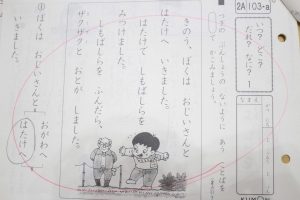 2A 103-a
いつ？ どこ？
だれ？ なに？ 1
なまえ
つぎの ぶんしょうの ないように あう ことばを
きのう、ぼくは おじいさんと
はたけへ いきました。
はたけで しもばしらを
みつけました。
しもばしらを ふんだら、
ザクザクと おとが しました。
ぼくは おじいさんと
おがわへ
はたけへ
いきました。
KUMON